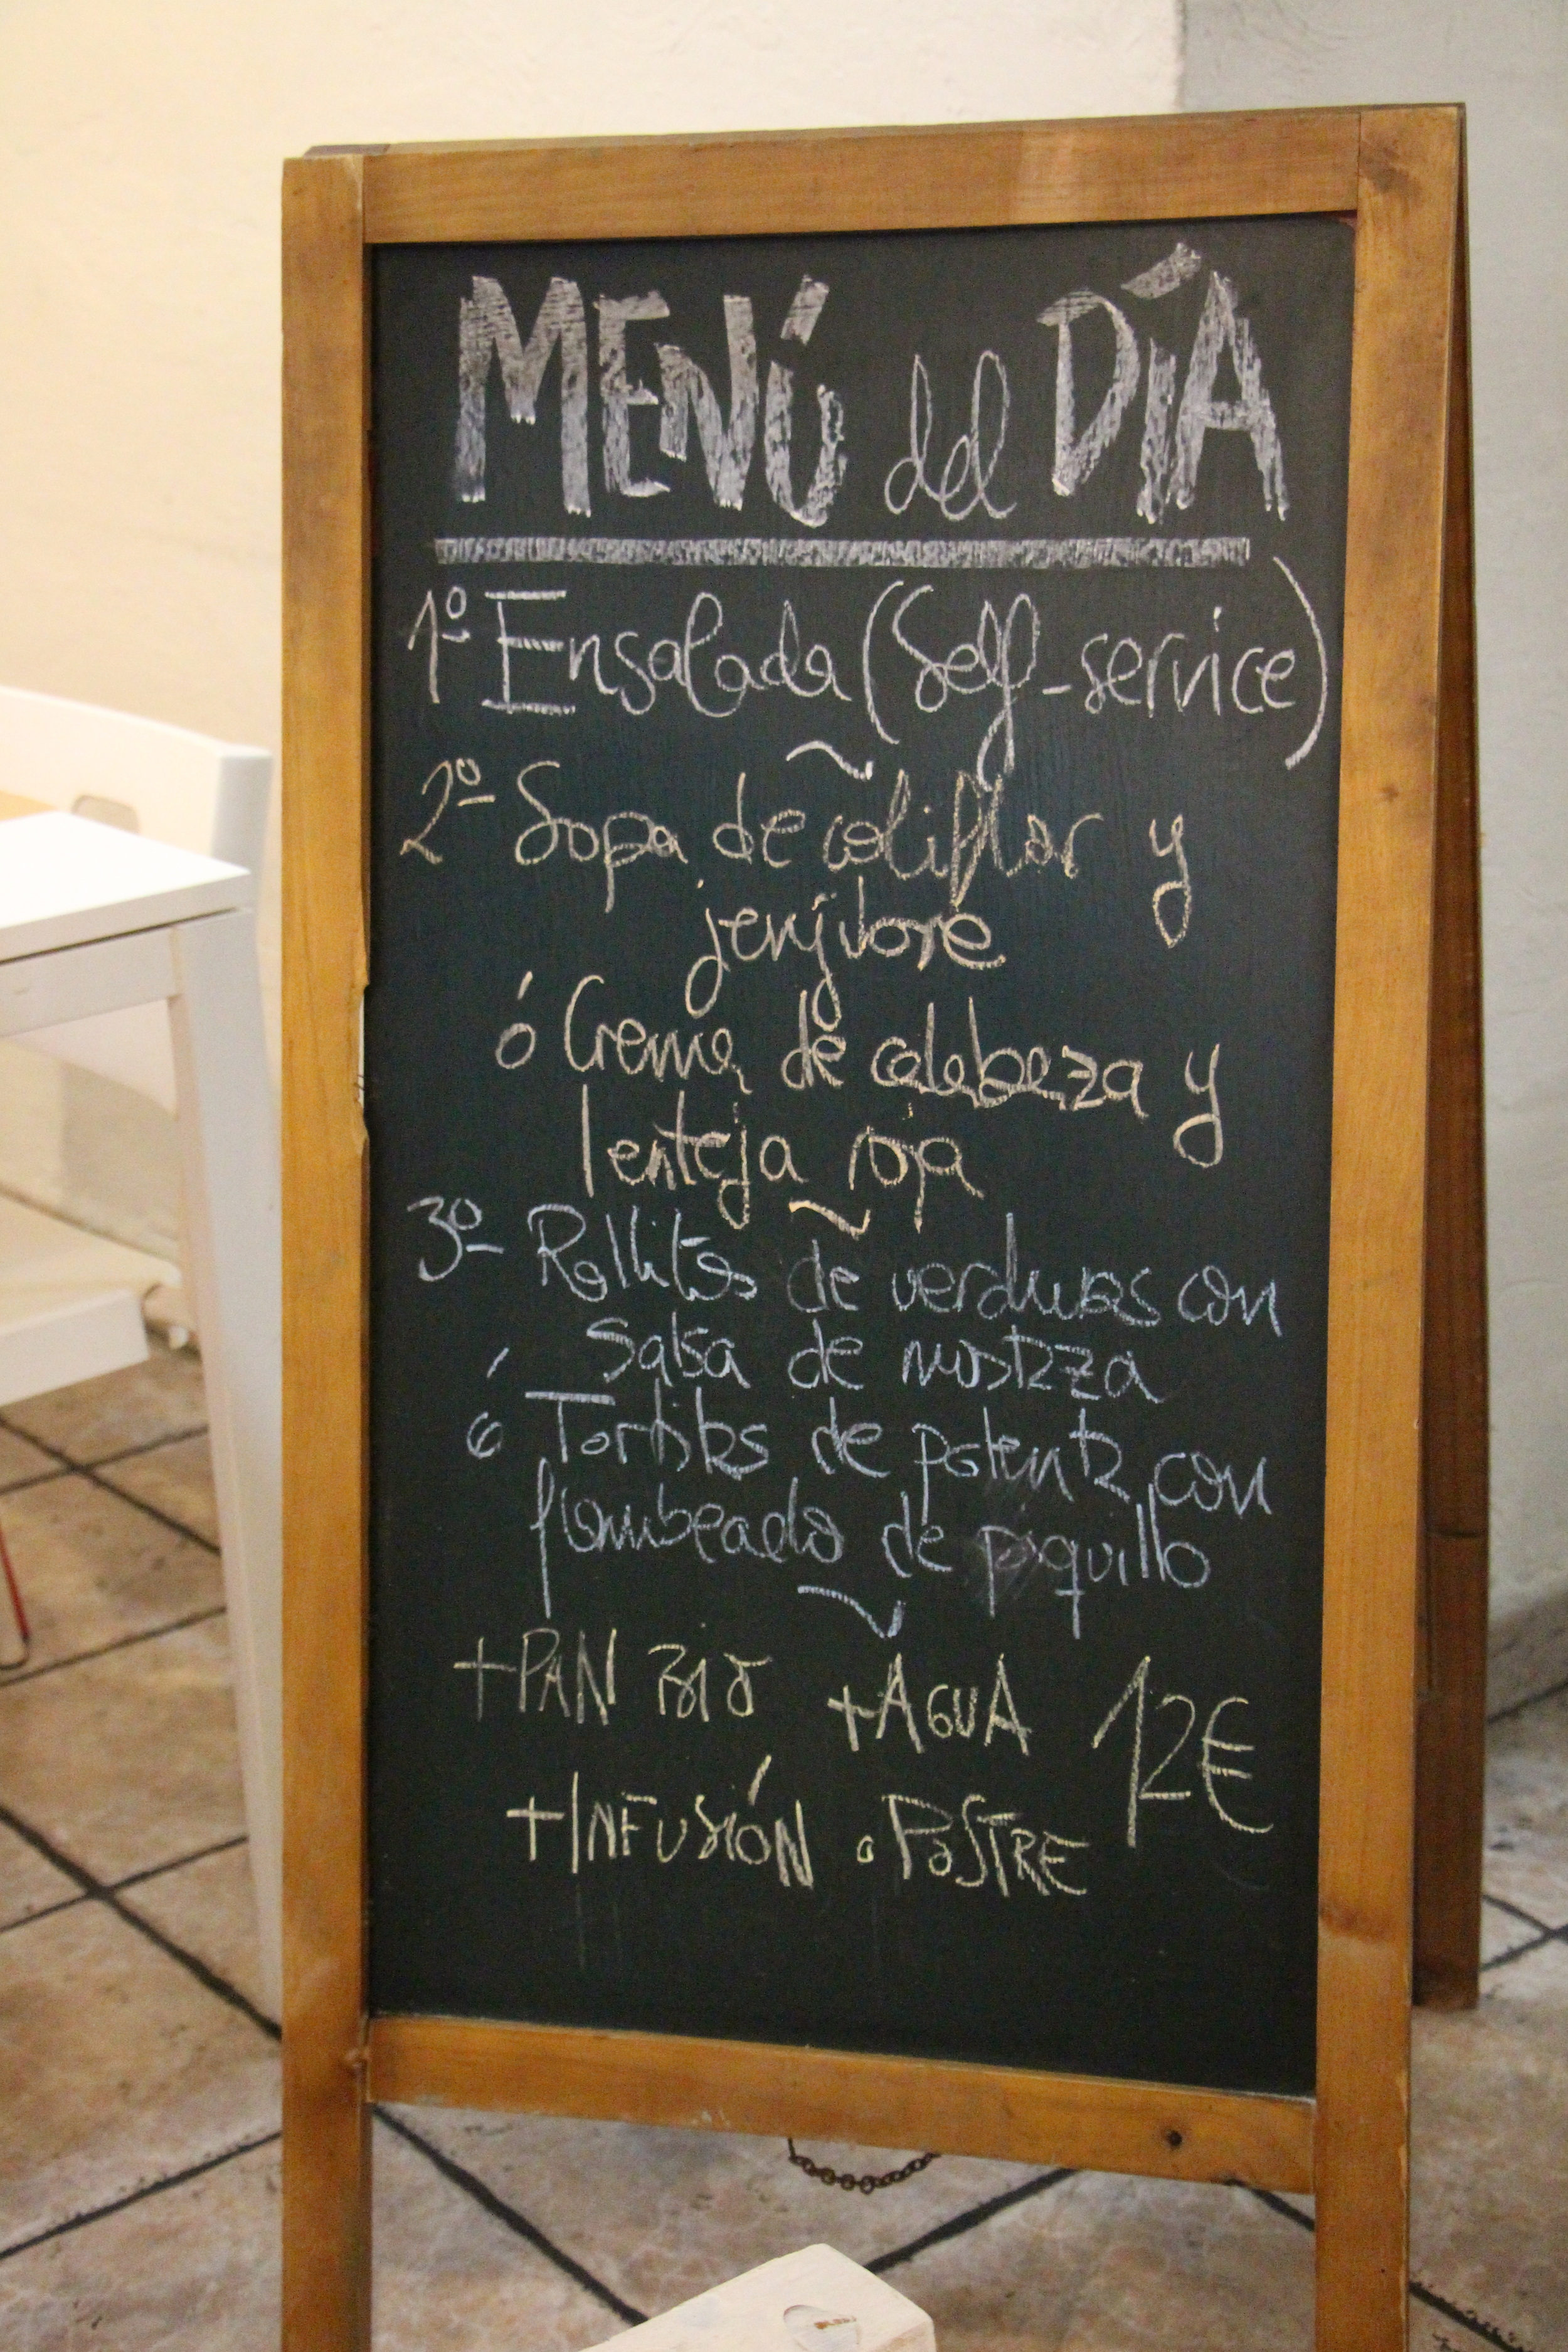 MENÚ del DÍA
1º Ensalada (Self-service)
2º Sopa de coliflor y
jenjibre
ó Crema de calabaza y
lenteja roja
3º Rollitos de verduras con
Salsa de mostaza
ó Tortitas de patenta con
flambeado de piquillo
+PAN BIO +AGUA 12€
+INFUSIÓN o POSTRE